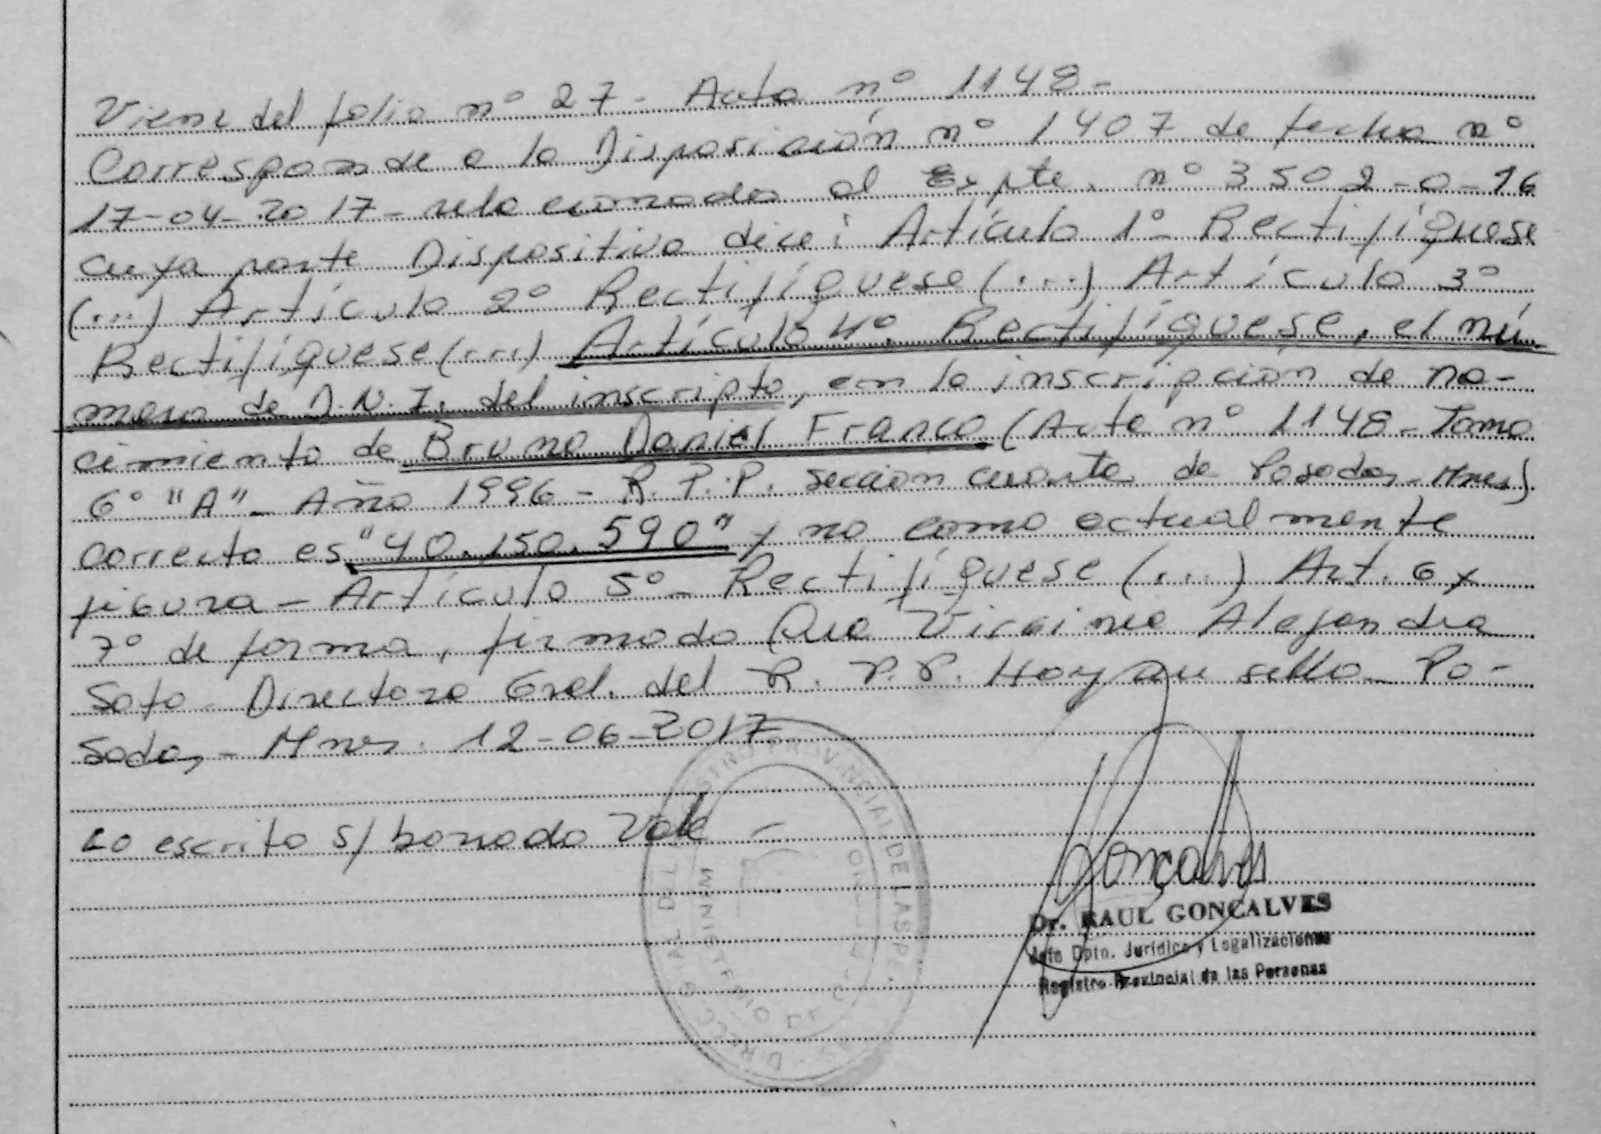 Viene del folio nº 27 - Acta nº 1148-
Corresponde a la Disposición nº 1407 de fecha nº
17-04-2017- relacionados al Expte. nº 3502-0-16
cuya parte Dispositiva dice: Artículo 1º- Rectifíquese
(...) Artículo 2º Rectifíquese (...) Artículo 3º
Rectifíquese (...) Artículo 4º. Rectifíquese, el nú-
mero de D.N.I. del inscripto, en la inscripción de na-
cimiento de Bruno Daniel Franco (Acta nº 1148- Tomo
6º "A"- Año 1996- R.P.P. sección cuarta de Posadas- Mnes)
correcto es "40.150.590" y no como actualmente
figura - Artículo 5º- Rectifíquese (...) Art. 6 y
7º de forma, firmado Dra Virginia Alejandra
Soto- Directora Gral. del R.P.P. Hay un sello- Po-
sadas- Mnes. 12-06-2017
Lo escrito s/ borrado Vale -
Goncalves
Dr. RAUL GONCALVES
Jefe Dpto. Jurídico y Legalizaciones
Registro Provincial de las Personas
PROVINCIAL DE LAS PE
MINISTERIO DE